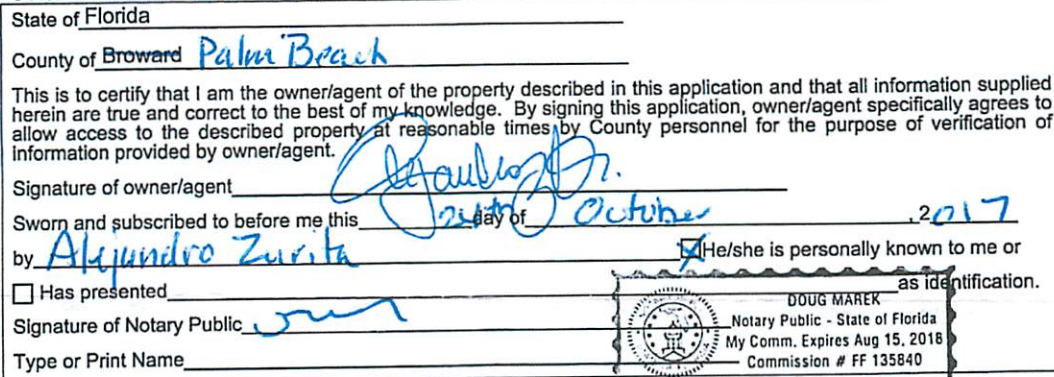 State of Florida
County of Broward Palm Beach
This is to certify that I am the owner/agent of the property described in this application and that all information supplied
herein are true and correct to the best of my knowledge. By signing this application, owner/agent specifically agrees to
allow access to the described property at reasonable times by County personnel for the purpose of verification of
information provided by owner/agent.
Signature of owner/agent
Sworn and subscribed to before me this day of October , 2017
by Alejandro Zurita He/she is personally known to me or
Has presented as identification.
DOUG MAREK
Signature of Notary Public Notary Public - State of Florida
My Comm. Expires Aug 15, 2018
Type or Print Name Commission # FF 135840